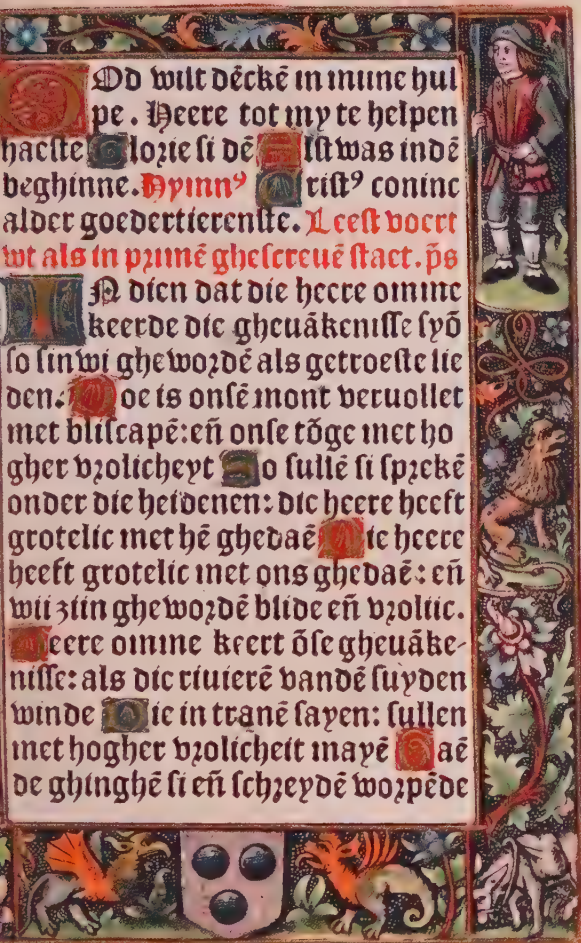 GOd wilt dēckē in mijne hul
pe. Heere tot my te helpen
haeste Glorie si dē Alst was indē
beghinne. Hymnꝰ Cristꝰ coninc
alder goedertierenste. Leest voert
wt als in prīmē ghescreuē staet. p̄s
IN dien dat die heere omme
keerde die gheuākenisse syō
so sin wi ghewordē als getroeste lie
den. Doe is onsē mont veruollet
met bliscapē: eñ onse tōge met ho
gher vrolicheyt So sullē si sprekē
onder die heidenen: die heere heeft
grotelic met hē ghedaē Die heere
heeft grotelic met ons ghedaē: eñ
wij zijn ghewordē blide eñ vrolijc.
Heere omme keert ōse gheuāke-
nisse: als die riuierē vandē suyden
winde Die in tranē sayen: sullen
met hogher vrolicheit mayē Gaē
de ghinghē si eñ schreydē worpēde